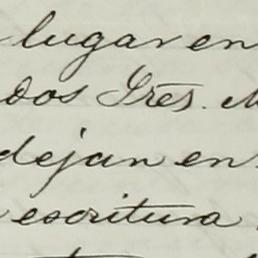 lugar en
dos Sres. M
dejan en
escritura